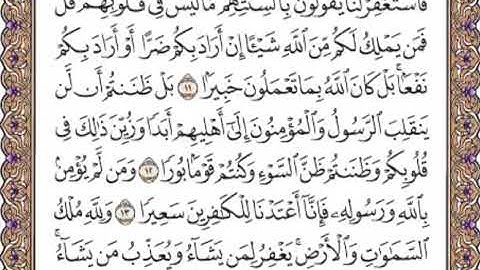 فَٱسْتَغْفِرْ لَنَا يَقُولُونَ بِأَلْسِنَتِهِم مَّا لَيْسَ فِي قُلُوبِهِمْ قُلْ
فَمَن يَمْلِكُ لَكُم مِّنَ ٱللَّهِ شَيْـًٔا إِنْ أَرَادَ بِكُمْ ضَرًّا أَوْ أَرَادَ بِكُمْ
نَفْعًۢا بَلْ كَانَ ٱللَّهُ بِمَا تَعْمَلُونَ خَبِيرًا ١١ بَلْ ظَنَنتُمْ أَن لَّن
يَنقَلِبَ ٱلرَّسُولُ وَٱلْمُؤْمِنُونَ إِلَىٰٓ أَهْلِيهِمْ أَبَدًا وَزُيِّنَ ذَٰلِكَ فِي
قُلُوبِكُمْ وَظَنَنتُمْ ظَنَّ ٱلسَّوْءِ وَكُنتُمْ قَوْمًۢا بُورًا ١٢ وَمَن لَّمْ يُؤْمِنۢ
بِٱللَّهِ وَرَسُولِهِۦ فَإِنَّآ أَعْتَدْنَا لِلْكَٰفِرِينَ سَعِيرًا ١٣ وَلِلَّهِ مُلْكُ
ٱلسَّمَٰوَٰتِ وَٱلْأَرْضِ ۚ يَغْفِرُ لِمَن يَشَآءُ وَيُعَذِّبُ مَن يَشَآءُ ۚ